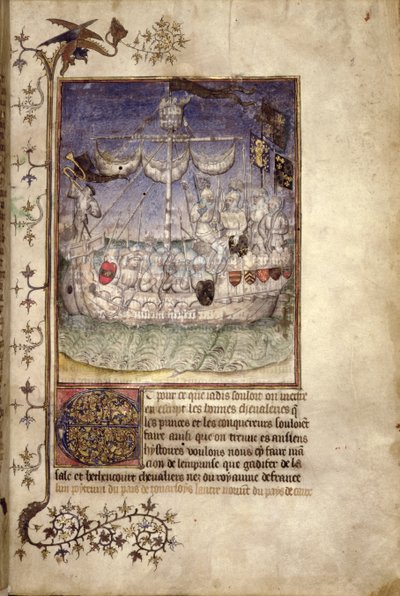 Et pour ce que iadis souloit on mectre
en escript les bonnes cheualeries q
les princes et les conquereurs souloiēt
faire ansi que on treuue es ansiens
hystoires voulons nous cy faire mā
cion de lemprinse que gadifer de la
sale et bethencourt cheualiers nez du royaume de france
lun poyteuin du pais de touarsoys lautre normēt du pays de caux